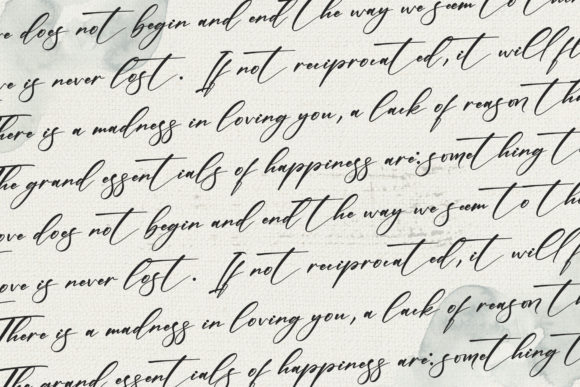 ve does not begin and end the way we seem to thin
ove is never lost. If not reciprocated, it will fl
There is a madness in loving you, a lack of reason th
The grand essent ials of happiness are: something t
ove does not begin and end the way we seem to thi
Love is never lost. If not reciprocated, it will f
There is a madness in loving you, a lack of reason t
The grand essent ials of happiness are: something t